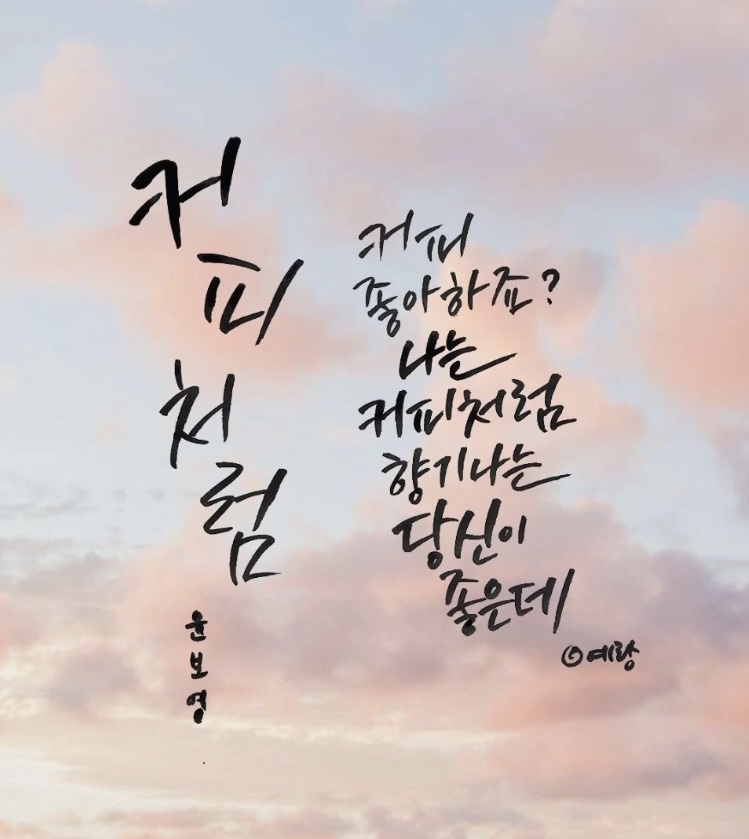 커피처럼
윤보영
커피
좋아하죠?
나는
커피처럼
향기나는
당신이
좋은데
@예랑